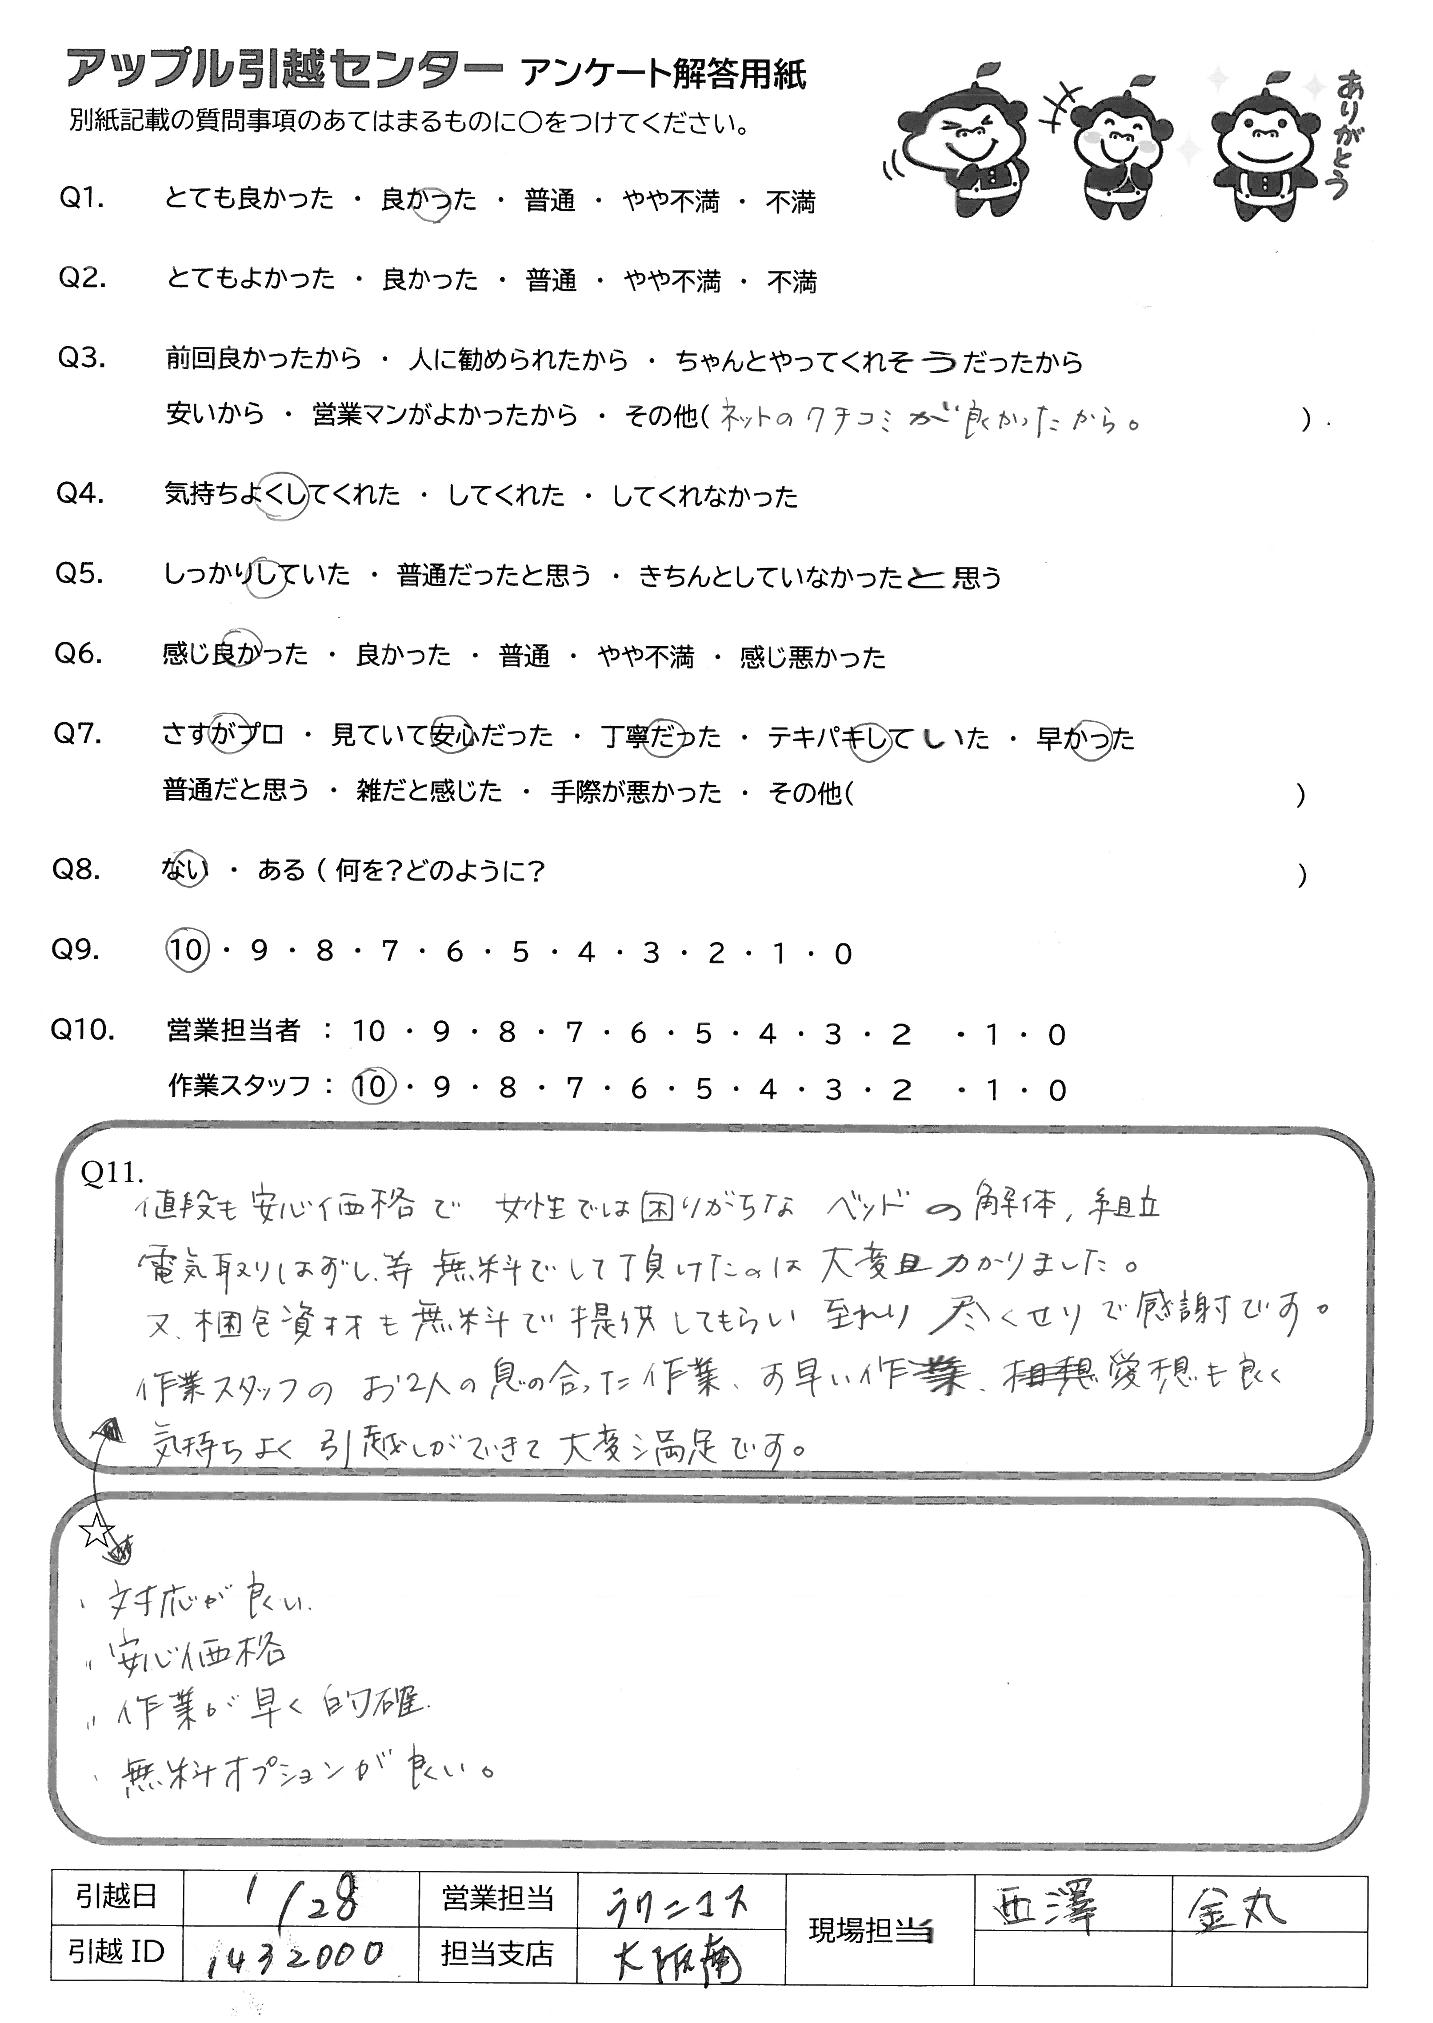 アップル引越センター アンケート解答用紙
別紙記載の質問事項のあてはまるものに〇をつけてください。
ありがとう
Q1. とても良かった ・ 良かった ・ 普通 ・ やや不満 ・ 不満
Q2. とてもよかった ・ 良かった ・ 普通 ・ やや不満 ・ 不満
Q3. 前回良かったから ・ 人に勧められたから ・ ちゃんとやってくれそうだったから
安いから ・ 営業マンがよかったから ・ その他( ネットのクチコミが良かったから。 )
Q4. 気持ちよくしてくれた ・ してくれた ・ してくれなかった
Q5. しっかりしていた ・ 普通だったと思う ・ きちんとしていなかったと思う
Q6. 感じ良かった ・ 良かった ・ 普通 ・ やや不満 ・ 感じ悪かった
Q7. さすがプロ ・ 見ていて安心だった ・ 丁寧だった ・ テキパキしていた ・ 早かった
普通だと思う ・ 雑だと感じた ・ 手際が悪かった ・ その他( )
Q8. ない ・ ある ( 何を？どのように？ )
Q9. 10 ・ 9 ・ 8 ・ 7 ・ 6 ・ 5 ・ 4 ・ 3 ・ 2 ・ 1 ・ 0
Q10. 営業担当者 ： 10 ・ 9 ・ 8 ・ 7 ・ 6 ・ 5 ・ 4 ・ 3 ・ 2 ・ 1 ・ 0
作業スタッフ ： 10 ・ 9 ・ 8 ・ 7 ・ 6 ・ 5 ・ 4 ・ 3 ・ 2 ・ 1 ・ 0
Q11.
値段も安心価格で 女性では困りがちな ベッドの解体、組立
電気取りはずし、等 無料でして頂けたのは 大変助かりました。
又、梱包資材も無料で提供してもらい 至れり 尽くせりで感謝です。
作業スタッフの お2人の息の合った作業、お早い作業、相想愛想も良く
気持ちよく 引越しができて 大変満足です。
☆
・対応が良い.
〃安心価格
〃作業が早く的確.
・無料オプションが良い。
引越日 1/28 営業担当 ラワニコス 現場担当 西澤 金丸
引越ID 1432000 担当支店 大阪南